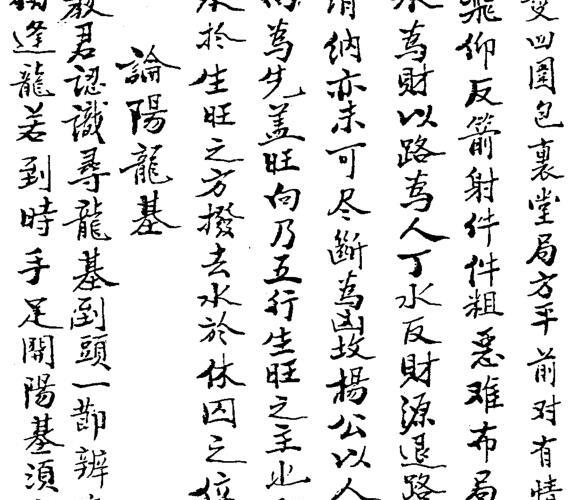 四圍包裹堂局方平前对有情
飛仰反箭射件件粗惡难布局
為財以路為人丁水反財源退路
納亦未可尽断為凶故楊公以人
為先盖旺向乃五行生旺之主也
於生旺之方撥去水於休囚之位
論陽龍基
教君認識尋龍基到頭一節辨
逢龍若到時手足開陽基須